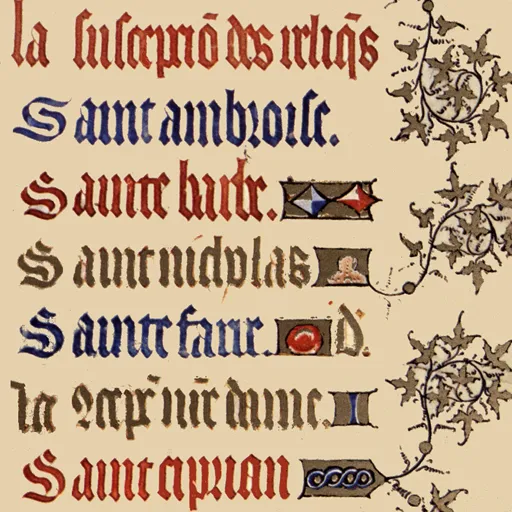 la suscepciō des reliq̄s
Saint ambroise.
Sainte barbe.
Saint nicholas
Sainte fare. D.
la 9cepc̄ nr̄e dame.
Saint ciprian